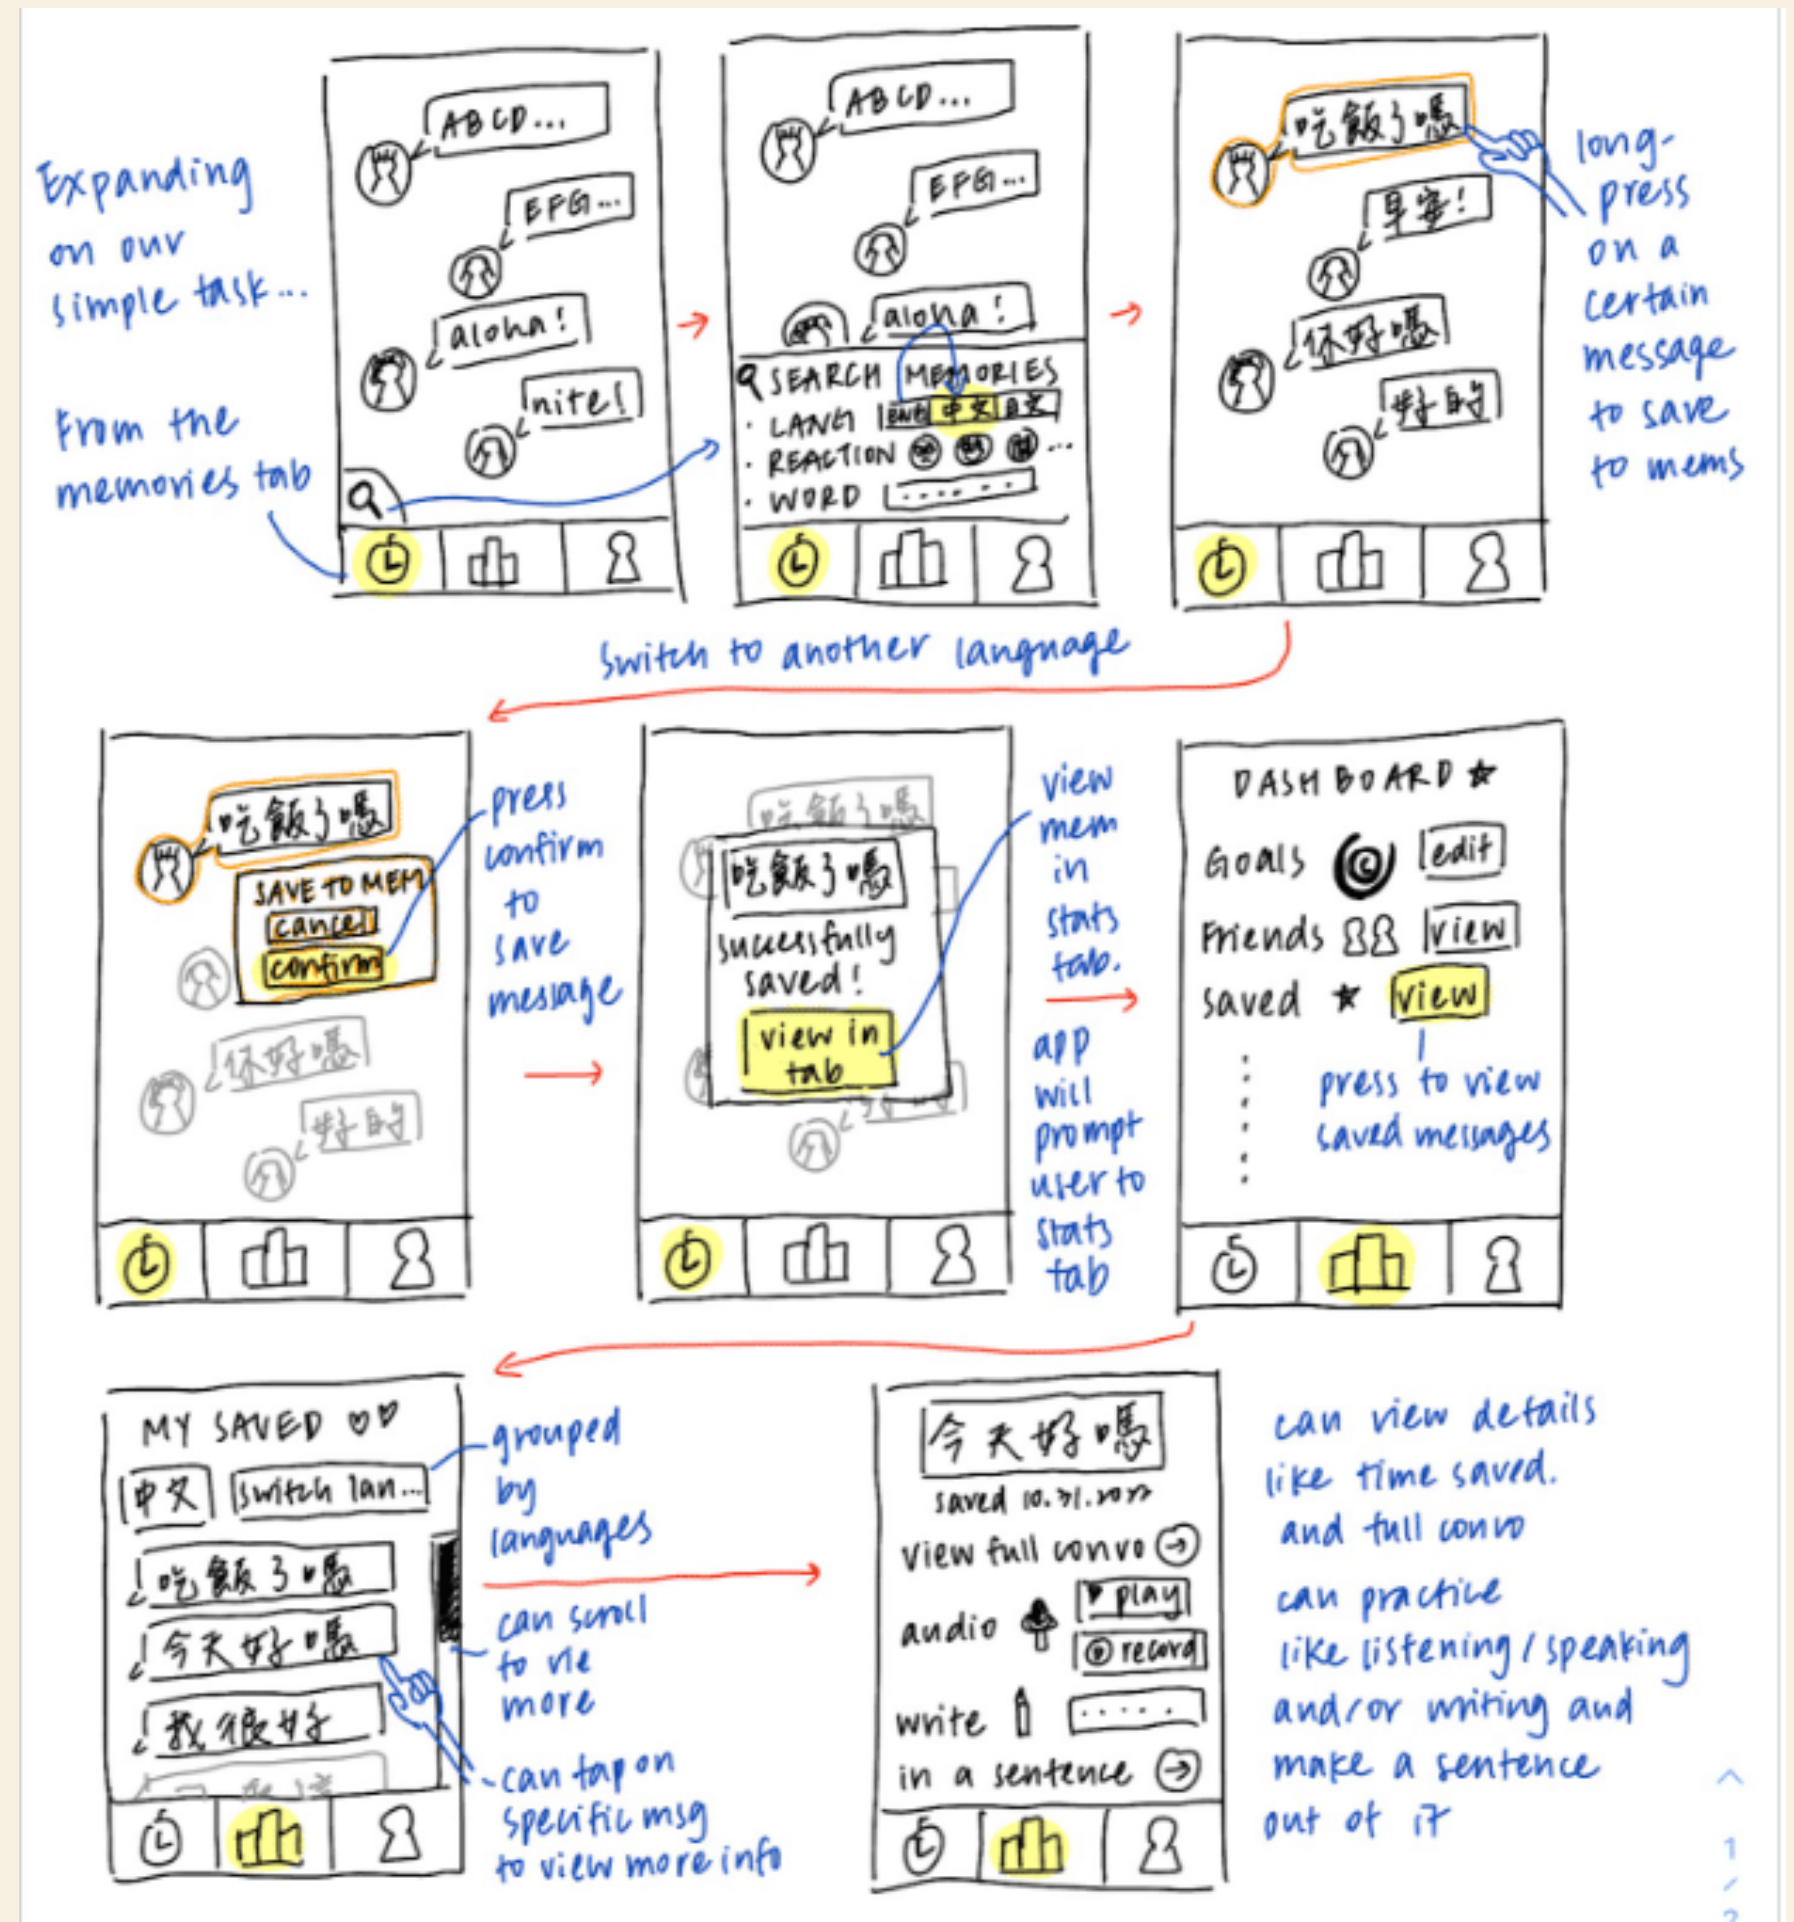 Expanding
on our
simple task...
From the
memories tab
ABCD...
EFG...
aloha!
nite!
ABCD...
EFG...
aloha!
SEARCH MEMORIES
· LANG ENG 中文 日文
· REACTION ...
· WORD ......
吃飯了嗎
早安!
你好嗎
好的
long-
press
on a
certain
message
to save
to mems
Switch to another language
吃飯了嗎
SAVE TO MEM
cancel
confirm
你好嗎
好的
press
confirm
to
save
message
吃飯了嗎
吃飯了嗎
successfully
saved!
view in
tab
view
mem
in
stats
tab.
app
will
prompt
user to
stats
tab
DASHBOARD ★
Goals edit
Friends view
saved ★ view
press to view
saved messages
MY SAVED ♡♡
中文 switch lan...
吃飯了嗎
今天好嗎
我很好
grouped
by
languages
can scroll
to vie
more
can tap on
specific msg
to view more info
今天好嗎
saved 10.31.2022
view full convo →
audio play
record
write .....
in a sentence →
can view details
like time saved.
and full convo
can practice
like listening/speaking
and/or writing and
make a sentence
out of it
1
/
2